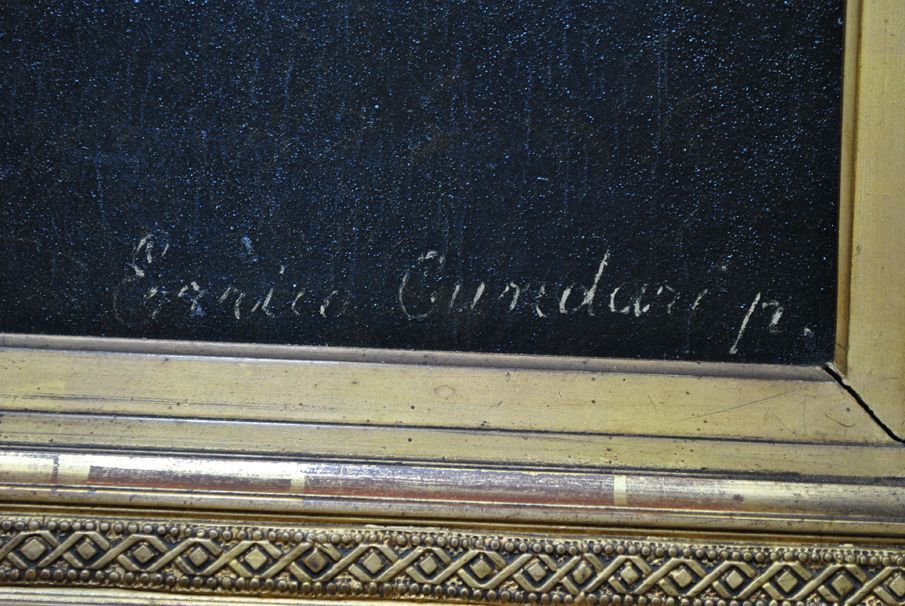 Enrico Cundari p.